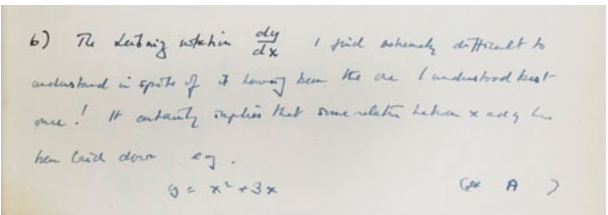 6) The Leibniz notation dy/dx I find extremely difficult to
understand in spite of it having been the one I understood best
once! It certainly implies that some relation between x and y has
been laid down eg.
y = x² + 3x (eq A )